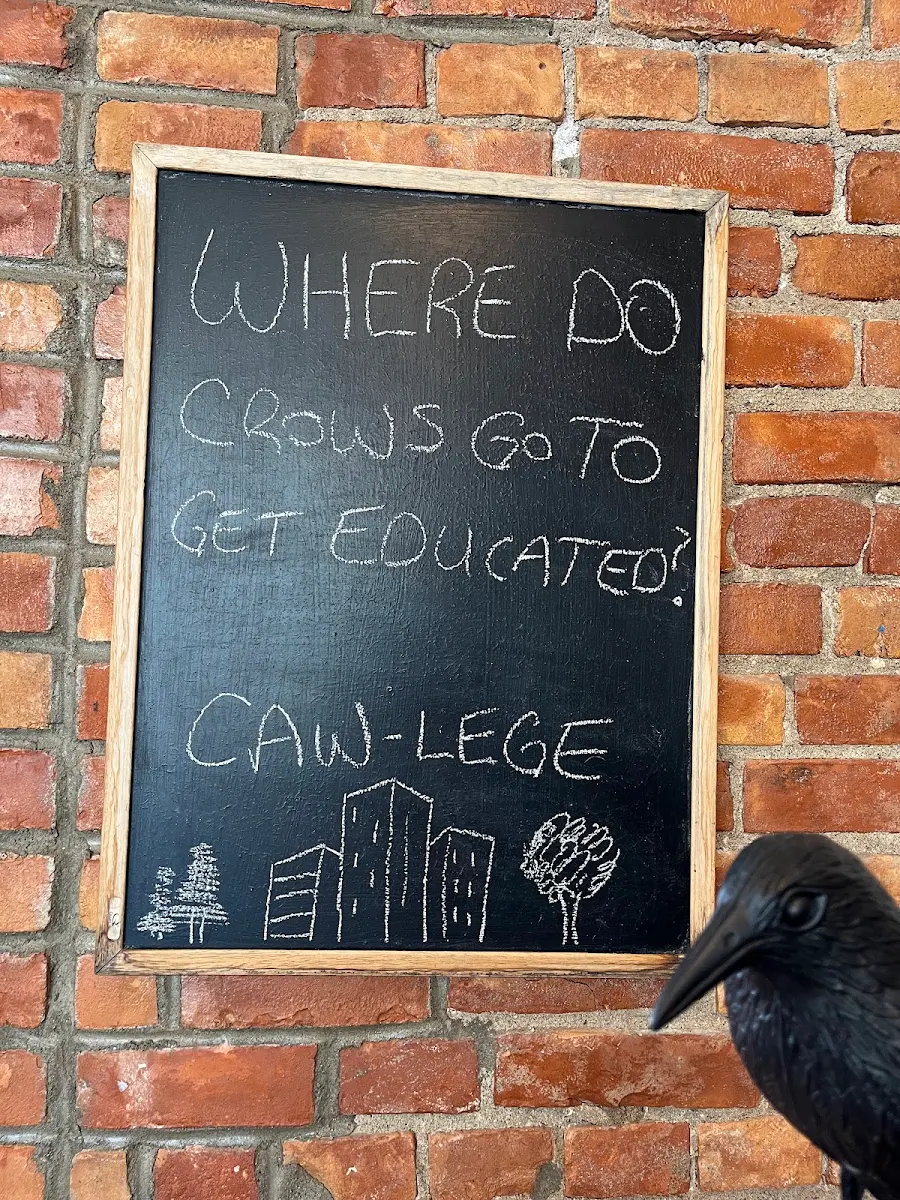 WHERE DO
CROWS GO TO
GET EDUCATED?
CAW-LEGE